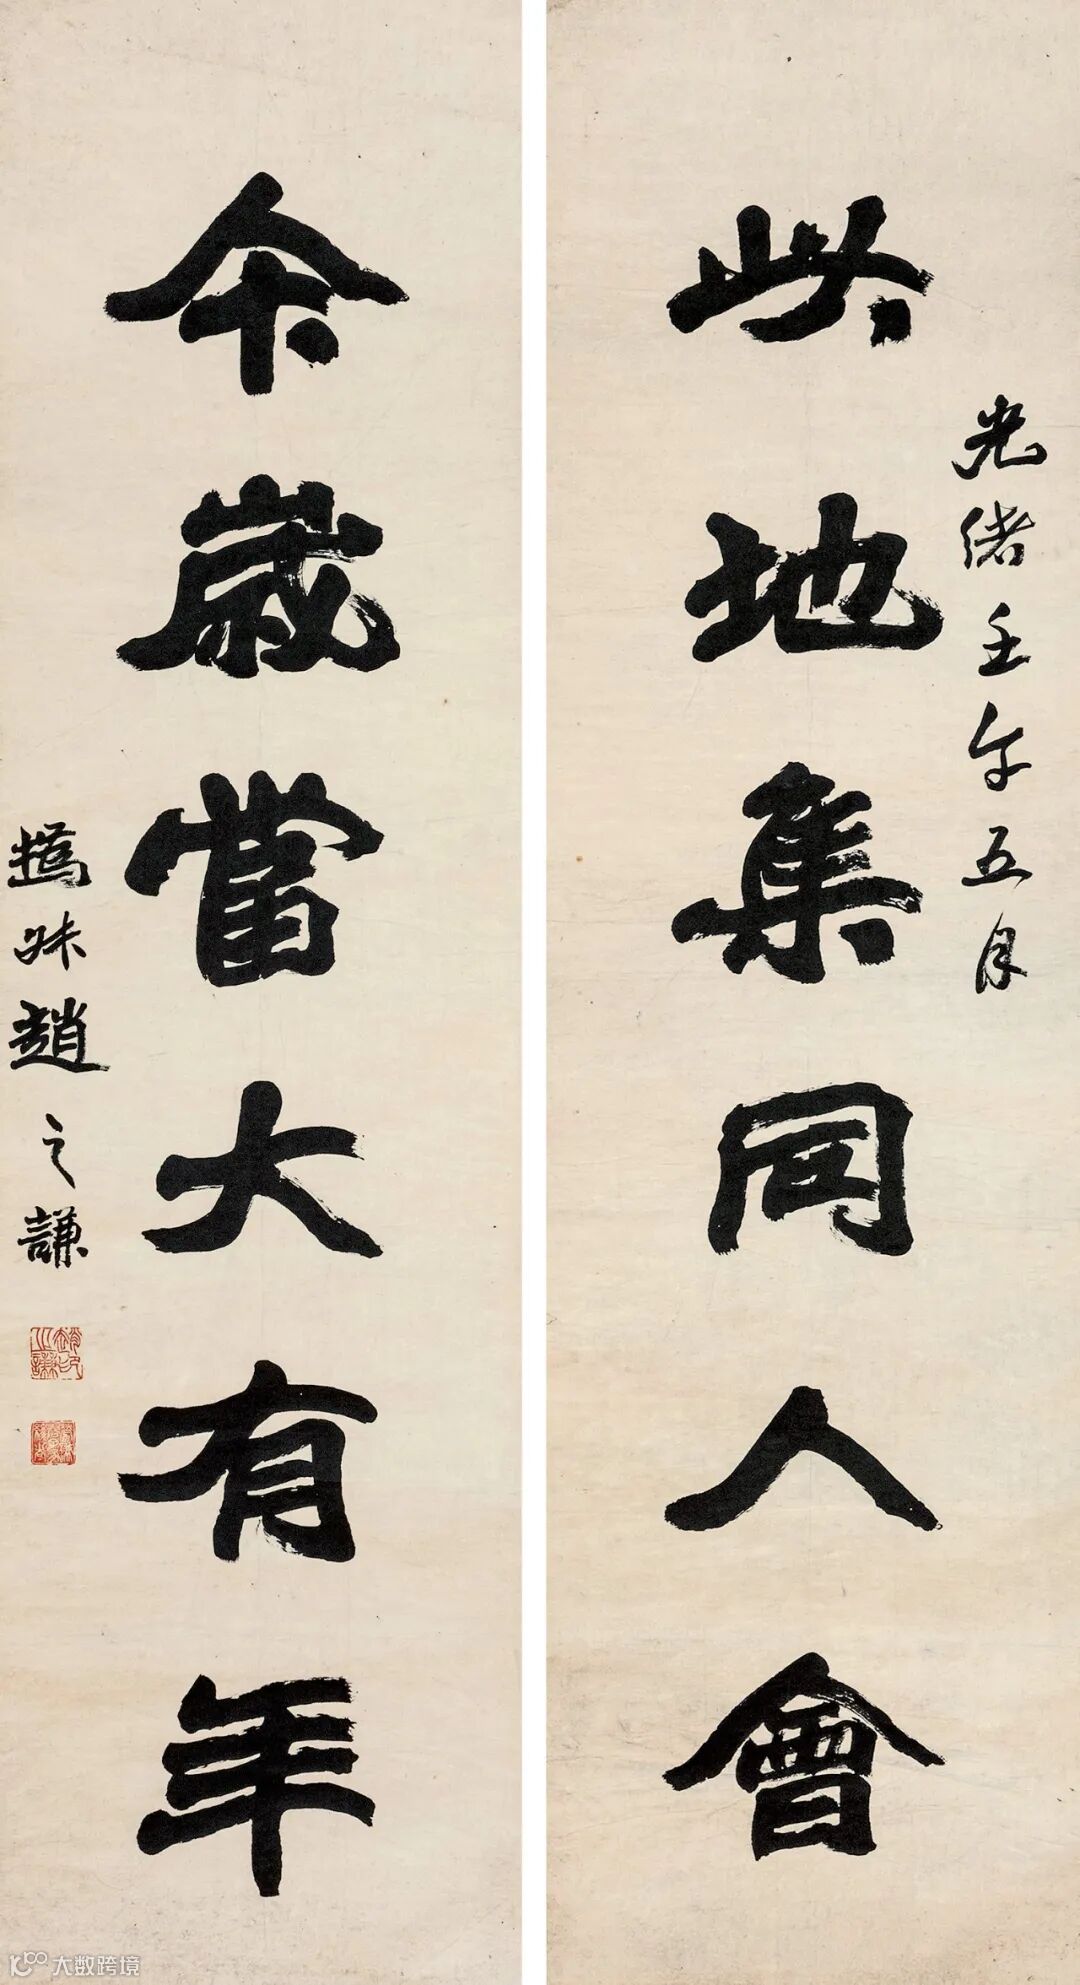 光緒壬午五月
此地集同人會
今歲當大有年
撝叔趙之謙
趙印之謙
大数跨境